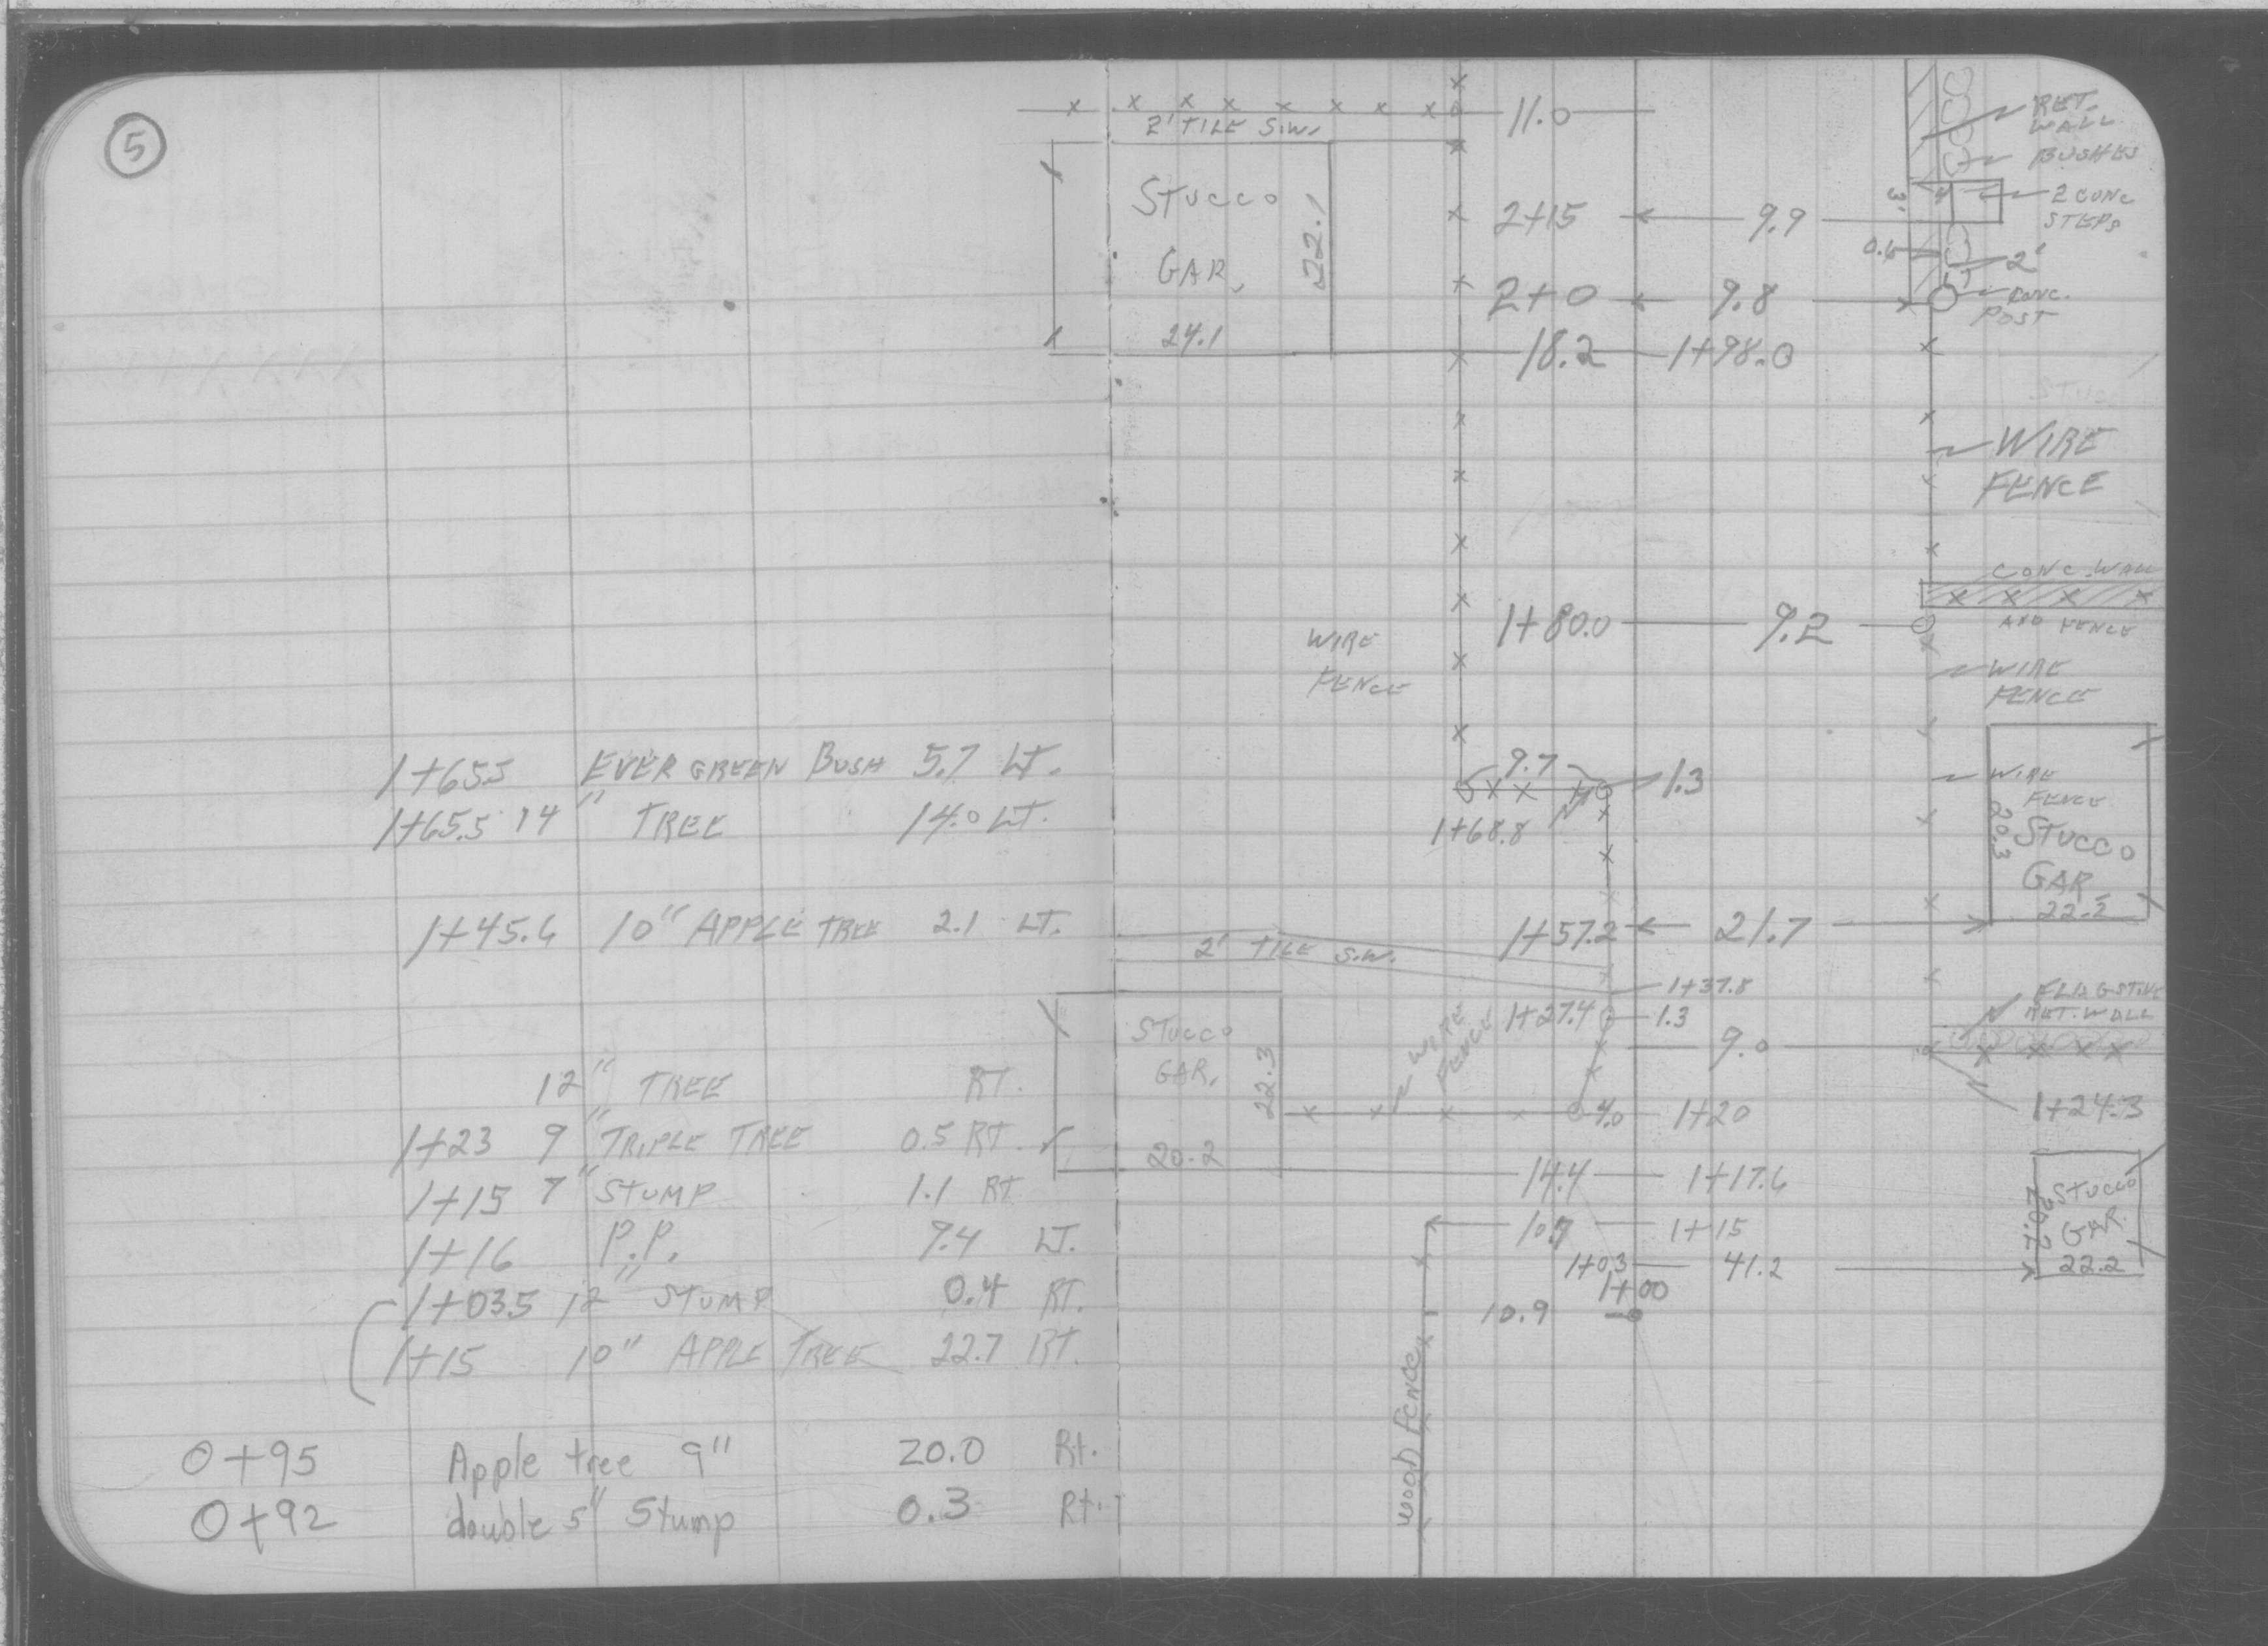 5
1+65.5 EVERGREEN BUSH 5.7 LT.
1+65.5 14" TREE 14.0 LT.
1+45.6 10" APPLE TREE 2.1 LT.
12" TREE RT.
1+23 9" TRIPLE TREE 0.5 RT.
1+15 7" STUMP 1.1 RT
1+16 P.P. 9.4 LT.
1+03.5 12" STUMP 0.4 RT.
1+15 10" APPLE TREE 22.7 RT.
0+95 Apple tree 9" 20.0 Rt.
0+92 double 5" Stump 0.3 Rt.
11.0
2' TILE S.W.
STUCCO
GAR.
24.1
22.1
RET.
WALL
BUSHES
2 CONC
STEPS
3'
4'
2+15 9.9
0.6
2'
CONC.
POST
2+0 9.8
18.2 1+98.0
WIRE
FENCE
CONC. WALL
AND FENCE
1+80.0 9.2
WIRE
FENCE
WIRE
FENCE
9.7
1.3
1+68.8
WIRE
FENCE
20.3
STUCCO
GAR
22.2
1+57.2 21.7
2' TILE S.W.
1+37.8
FLAGSTONE
RET. WALL
STUCCO
GAR.
22.3
20.2
WIRE
FENCE
1+27.4 1.3
9.0
1+24.3
4.0 1+20
14.4 1+17.6
10.9 1+15
1+03 41.2
STUCCO
GAR
20.2
22.2
1+00
10.9
wood fence